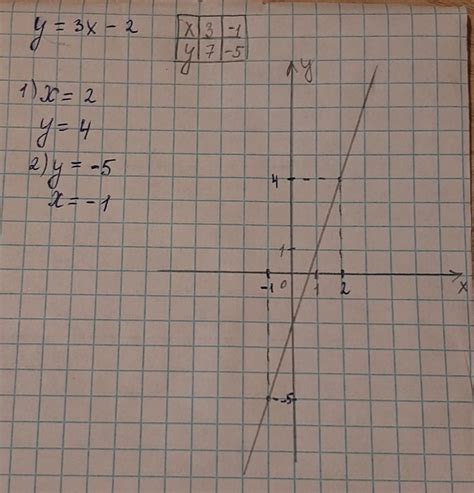 y = 3x - 2
x 3 -1
y 7 -5
1) x = 2
y = 4
2) y = -5
x = -1
y
4
1
-1 0 1 2 x
-5